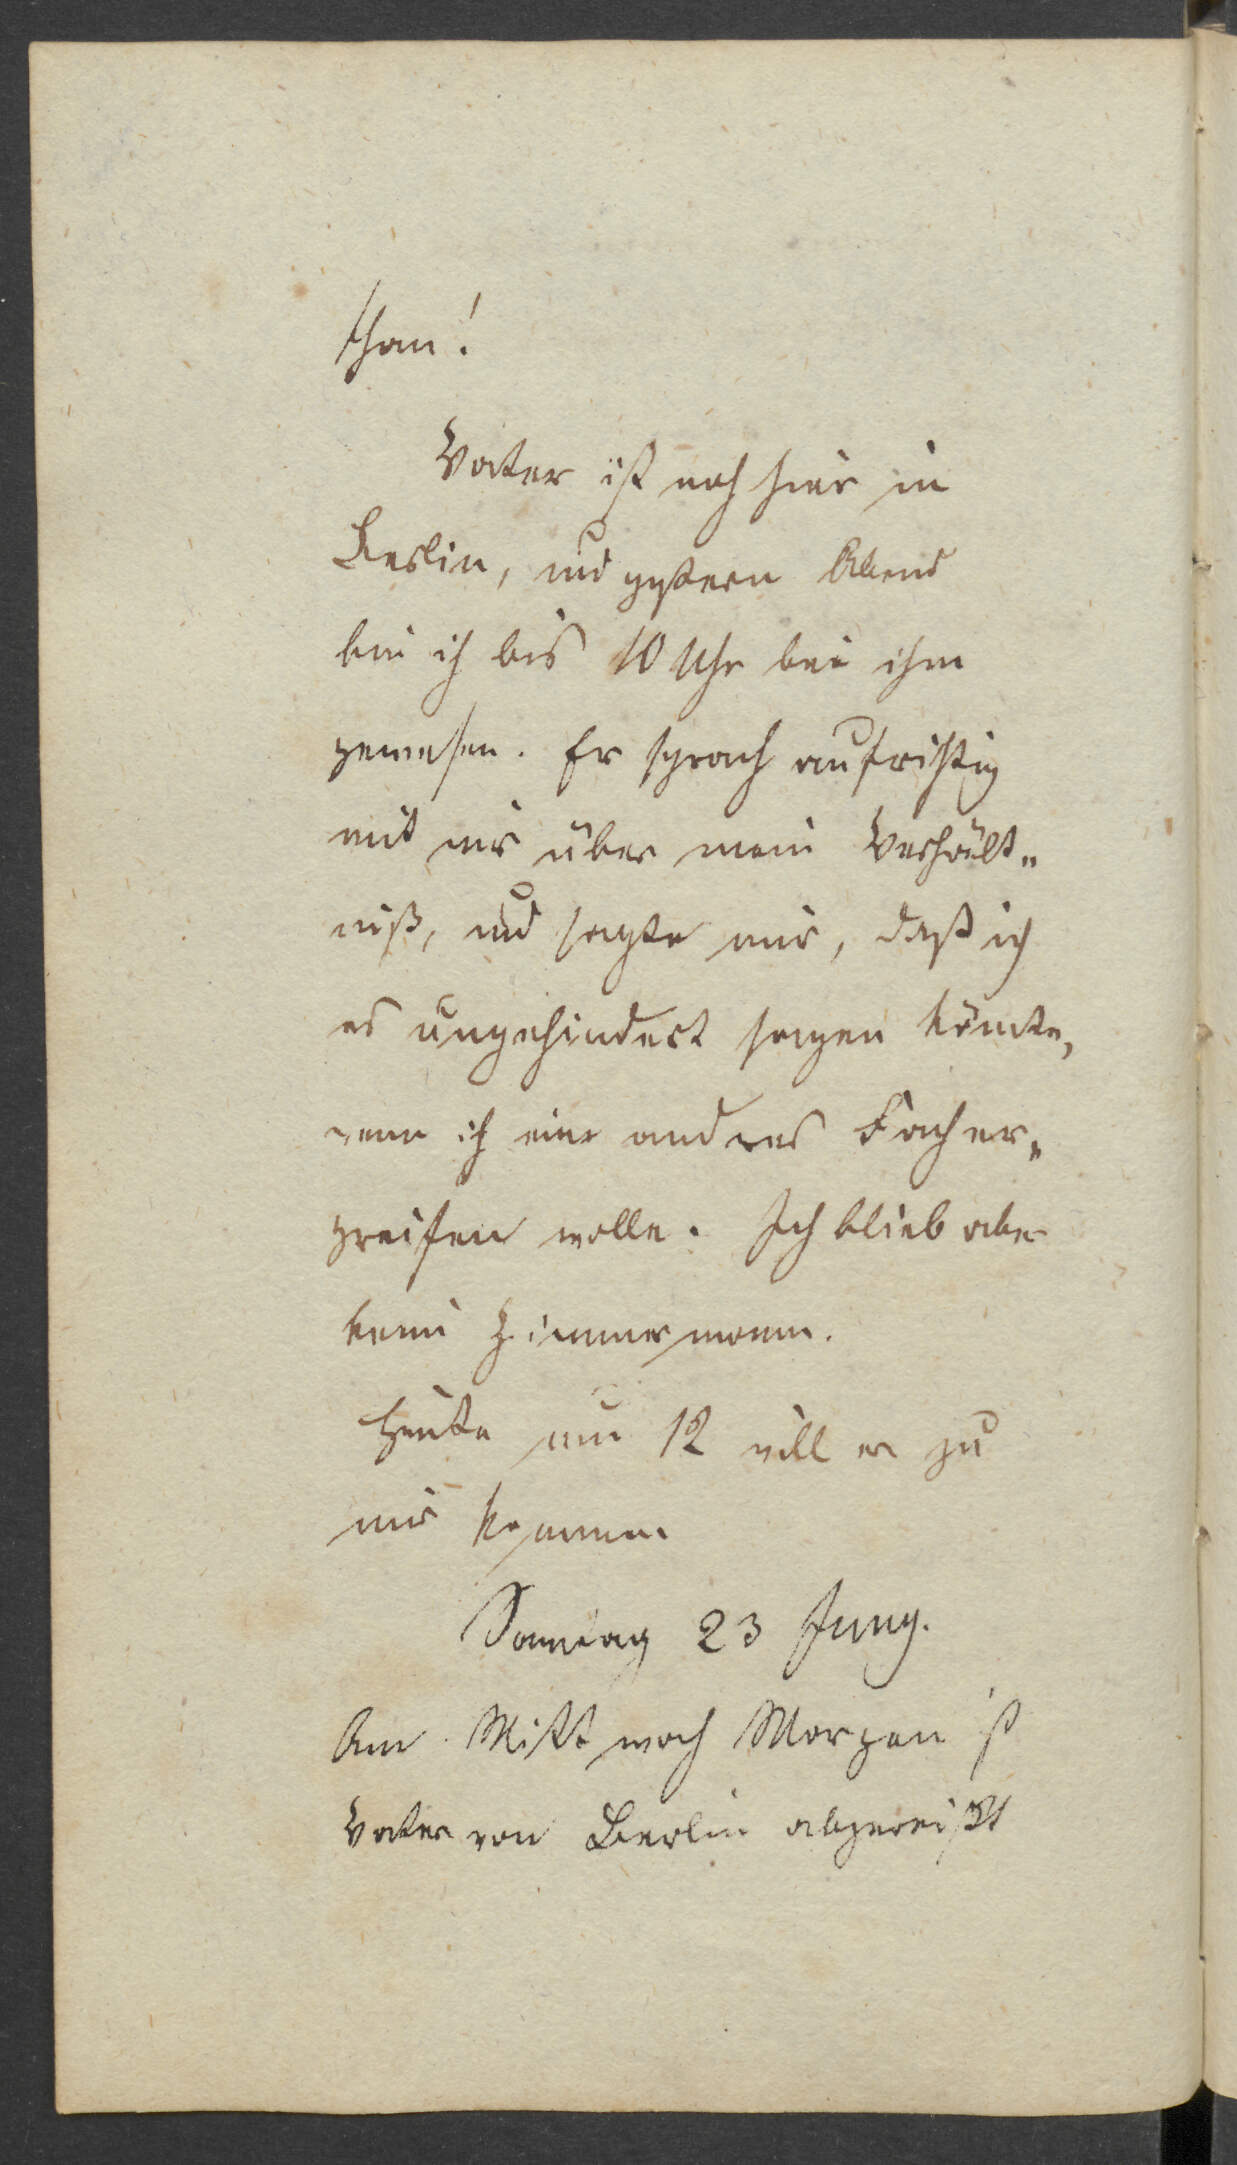 than!
Vater ist noch hier in
Berlin, und gestern Abend
bin ich bis 10 Uhr bei ihm
gewesen. Er sprach aufrichtig
mit mir über mein Verhält„
niß, und sagte mir, daß ich
es ungehindert sagen könnte,
wenn ich ein andres Fach er„
greifen wolle. Ich blieb aber
beim Zimmermann.
Heute um 12 will er zu
mir kommen
Sonntag 23 Juny.
Am Mittwoch Morgen ist
Vater von Berlin abgereißt